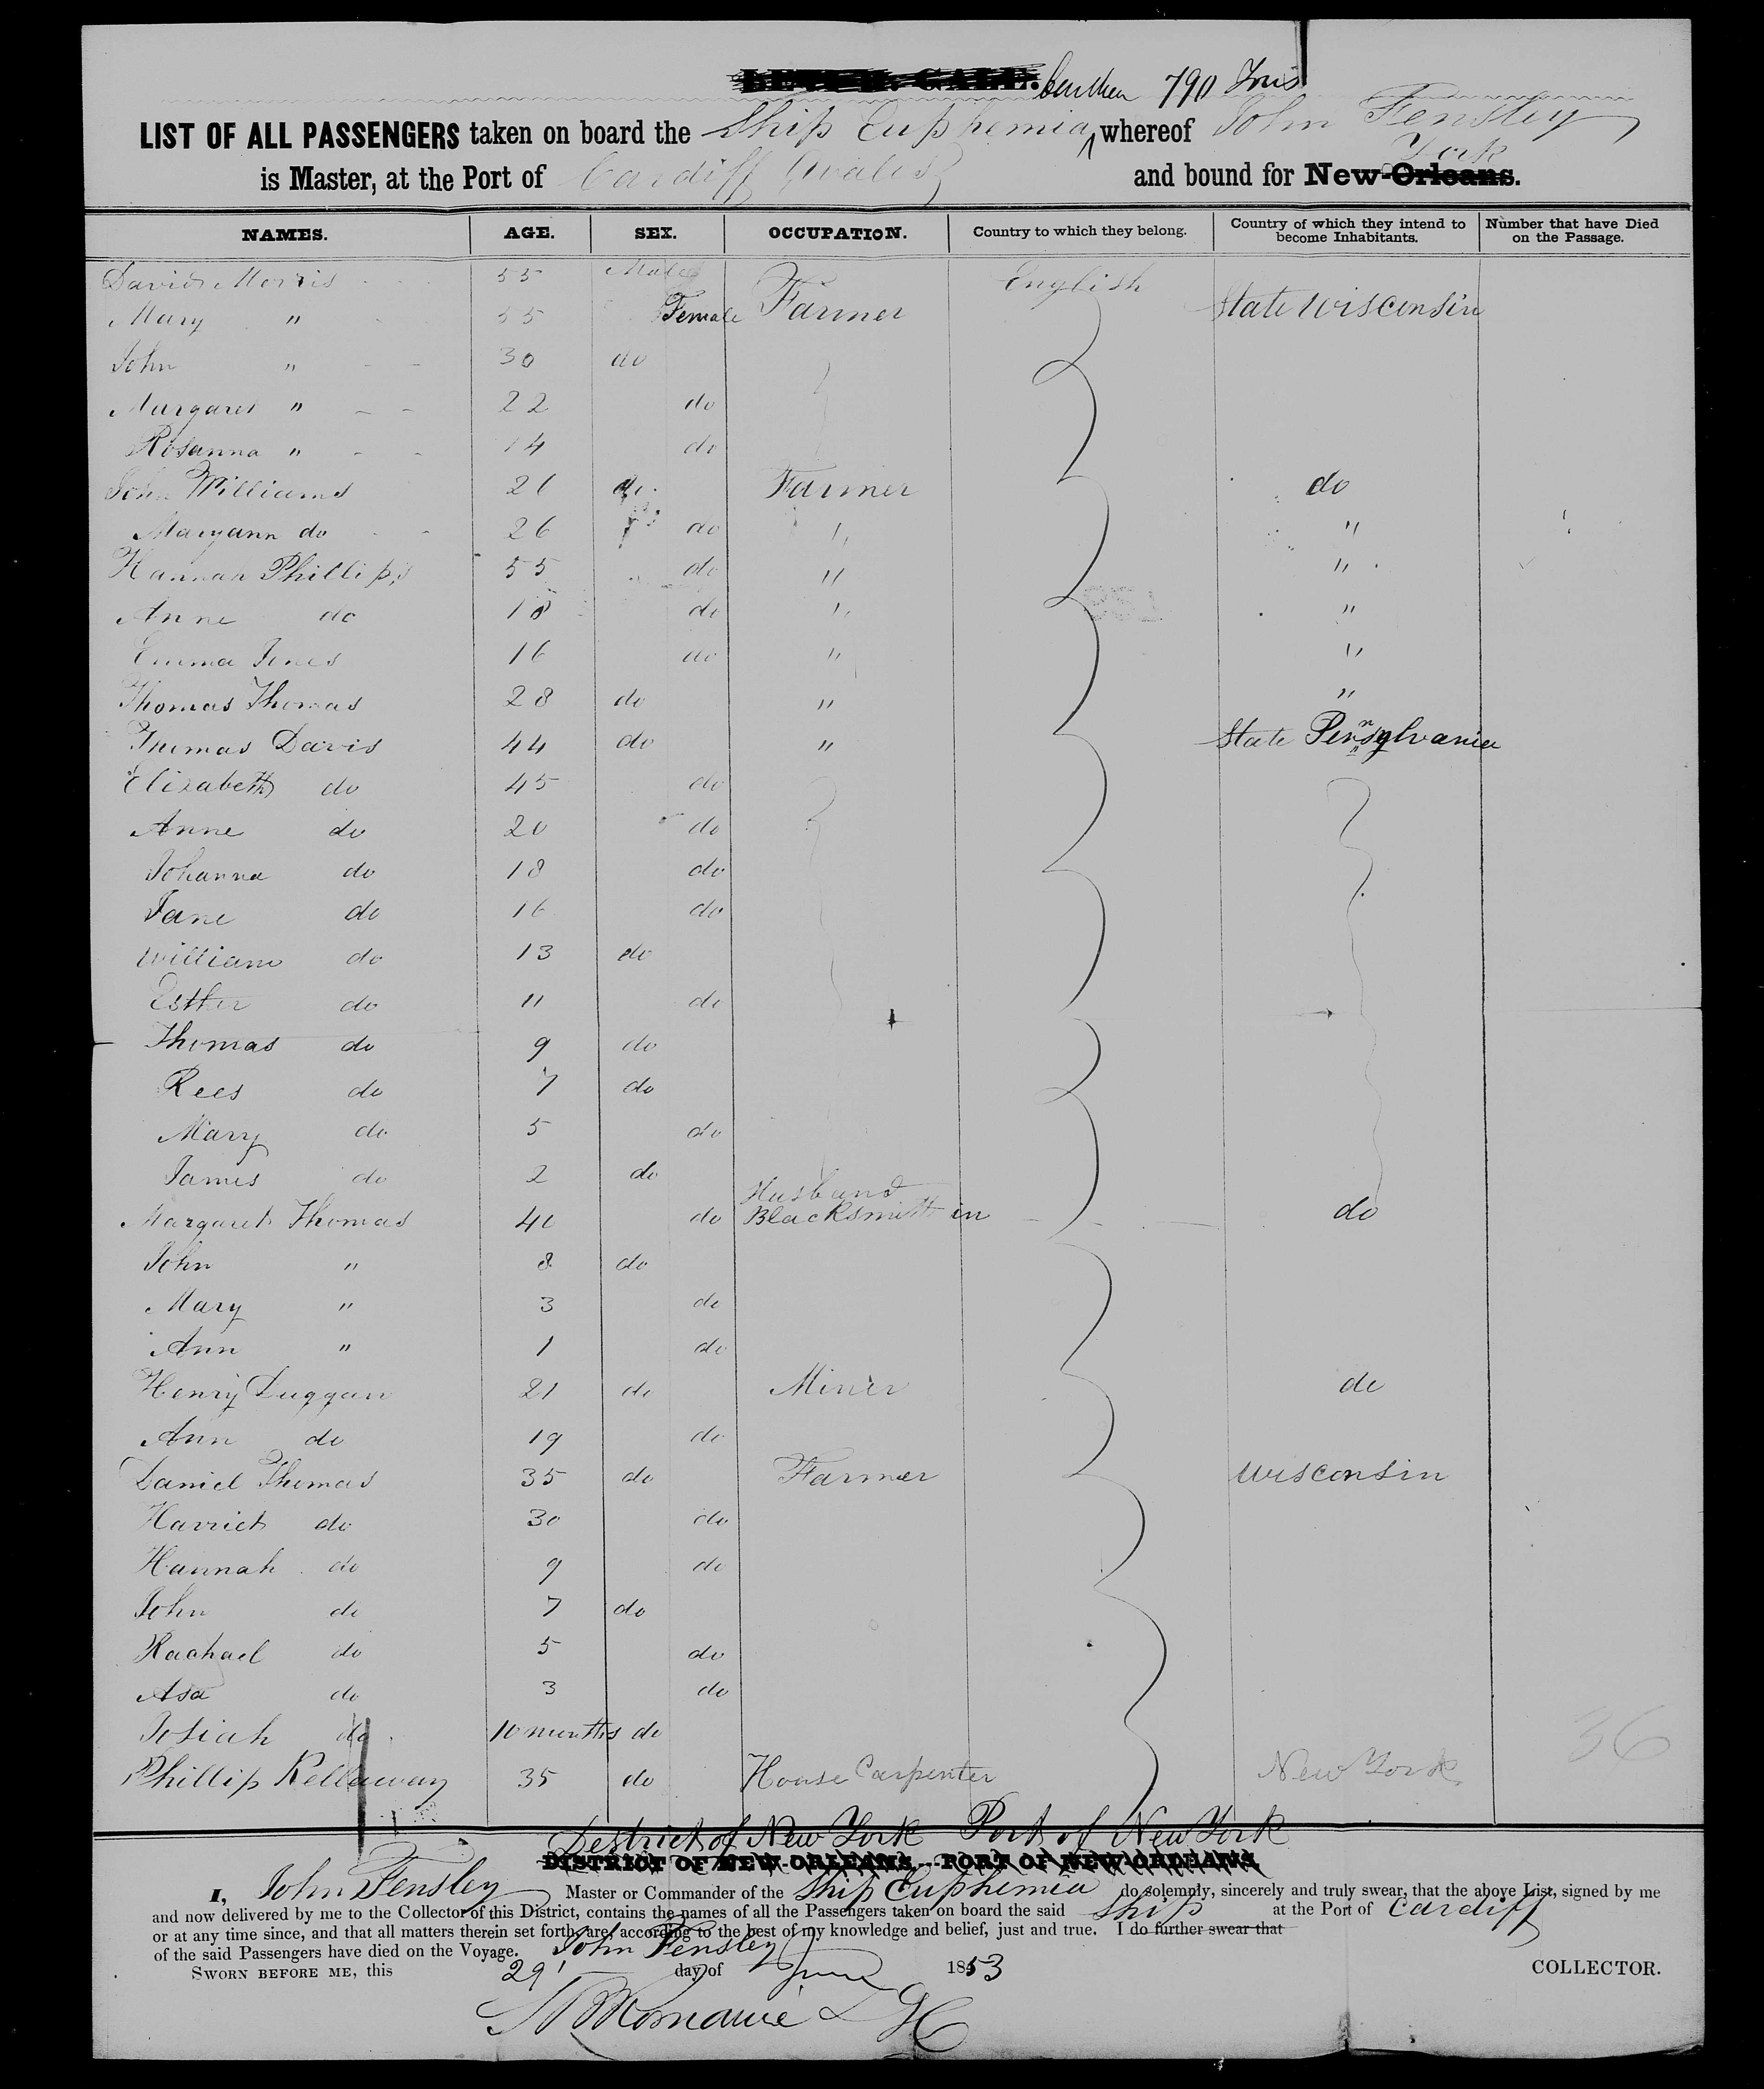 burthen 790 Tons
LIST OF ALL PASSENGERS taken on board the Ship Euphemia whereof John Fensley
is Master, at the Port of Cardiff Wales and bound for New-Orleans. York
NAMES. AGE. SEX. OCCUPATION. Country to which they belong. Country of which they intend to become Inhabitants. Number that have Died on the Passage.
David Morris 55 Male English
Mary " 55 Female Farmer State Wisconsin
John " 30 do
Margaret " 22 do
Rosanna " 14 do
John Williams 26 do Farmer do
Maryann do 26 do " "
Hannah Phillips 55 do " "
Anne do 18 do " "
Emma Jones 16 do " "
Thomas Thomas 28 do " "
Thomas Davis 44 do " State Pennsylvania
Elizabeth do 45 do
Anne do 20 do
Johanna do 18 do
Jane do 16 do
William do 13 do
Esther do 11 do
Thomas do 9 do
Rees do 7 do
Mary do 5 do
James do 2 do
Margaret Thomas 40 do Husband Blacksmith in do
John " 8 do
Mary " 3 do
Ann " 1 do
Henry Duggan 21 do Miner do
Ann do 19 do
Daniel Thomas 35 do Farmer Wisconsin
Harriet do 30 do
Hannah do 9 do
John do 7 do
Rachael do 5 do
Asa do 3 do
Josiah do 10 months do
36
Phillip Kellaway 35 do House Carpenter New York
District of New York Port of New York
DISTRICT OF NEW-ORLEANS---PORT OF NEW-ORLEANS
I, John Fensley Master or Commander of the Ship Euphemia do solemnly, sincerely and truly swear, that the above List, signed by me
and now delivered by me to the Collector of this District, contains the names of all the Passengers taken on board the said Ship at the Port of Cardiff
or at any time since, and that all matters therein set forth, are, according to the best of my knowledge and belief, just and true. I do further swear that
of the said Passengers have died on the Voyage. John Fensley
SWORN BEFORE ME, this 29 day of June 1853 COLLECTOR.